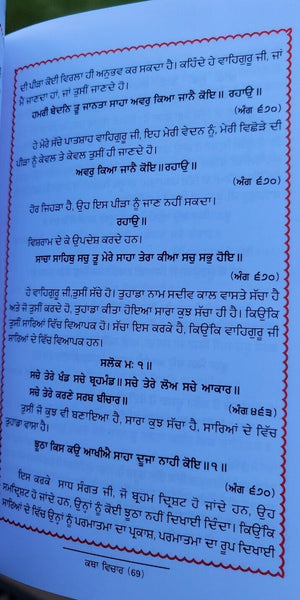 ਦੀ ਪੀੜਾ ਕੋਈ ਵਿਰਲਾ ਹੀ ਅਨੁਭਵ ਕਰ ਸਕਦਾ ਹੈ। ਕਹਿੰਦੇ ਹੇ ਵਾਹਿਗੁਰੂ ਜੀ, ਜਾਂ
ਮੈਂ ਜਾਣਦਾ ਹਾਂ, ਜਾਂ ਤੁਸੀਂ ਜਾਣਦੇ ਹੋ।
ਹਮਰੀ ਬੇਦਨਿ ਤੂ ਜਾਨਤਾ ਸਾਹਾ ਅਵਰੁ ਕਿਆ ਜਾਨੈ ਕੋਇ॥ ਰਹਾਉ॥
(ਅੰਗ ੬੭੦)
ਹੇ ਮੇਰੇ ਸੱਚੇ ਪਾਤਸ਼ਾਹ ਵਾਹਿਗੁਰੂ ਜੀ, ਇਹ ਮੇਰੀ ਵੇਦਨ ਨੂੰ, ਮੇਰੀ ਵਿਛੋੜੇ ਦੀ
ਪੀੜਾ ਨੂੰ ਕੇਵਲ ਤੇ ਕੇਵਲ ਤੁਸੀਂ ਹੀ ਜਾਣਦੇ ਹੋ।
ਅਵਰੁ ਕਿਆ ਜਾਨੈ ਕੋਇ॥ਰਹਾਉ॥
(ਅੰਗ ੬੭੦)
ਹੋਰ ਜਿਹੜਾ ਹੈ, ਉਹ ਇਸ ਪੀੜਾ ਨੂੰ ਜਾਣ ਨਹੀਂ ਸਕਦਾ।
ਰਹਾਉ॥
ਵਿਸ਼ਰਾਮ ਦੇ ਕੇ ਉਪਦੇਸ਼ ਕਰਦੇ ਹਨ।
ਸਾਚਾ ਸਾਹਿਬੁ ਸਚੁ ਤੂ ਮੇਰੇ ਸਾਹਾ ਤੇਰਾ ਕੀਆ ਸਚੁ ਸਭੁ ਹੋਇ॥
(ਅੰਗ ੬੭੦)
ਹੇ ਵਾਹਿਗੁਰੂ ਜੀ,ਤੁਸੀਂ ਸੱਚੇ ਹੋ। ਤੁਹਾਡਾ ਨਾਮ ਸਦੀਵ ਕਾਲ ਵਾਸਤੇ ਸੱਚਾ ਹੈ
ਅਤੇ ਜੋ ਤੁਸੀਂ ਕਰਦੇ ਹੋ, ਤੁਹਾਡਾ ਕੀਤਾ ਹੋਇਆ ਸਾਰਾ ਕੁਝ ਸੱਚਾ ਹੀ ਹੈ। ਕਿਉਂਕਿ
ਤੁਸੀਂ ਸਾਰਿਆਂ ਵਿੱਚ ਵਿਆਪਕ ਹੋ। ਸੱਚਾ ਇਸ ਕਰਕੇ ਹੈ, ਕਿਉਂਕਿ ਵਾਹਿਗੁਰੂ ਜੀ
ਸਾਰਿਆਂ ਦੇ ਵਿੱਚ ਵਿਆਪਕ ਹਨ।
ਸਲੋਕ ਮਃ ੧॥
ਸਚੇ ਤੇਰੇ ਖੰਡ ਸਚੇ ਬ੍ਰਹਮੰਡ॥ ਸਚੇ ਤੇਰੇ ਲੋਅ ਸਚੇ ਆਕਾਰ॥
ਸਚੇ ਤੇਰੇ ਕਰਣੇ ਸਰਬ ਬੀਚਾਰ॥ (ਅੰਗ ੪੬੩)
ਤੁਸੀਂ ਜੋ ਕੁਝ ਵੀ ਬਣਾਇਆ ਹੈ, ਸਾਰਾ ਕੁਝ ਸੱਚਾ ਹੈ, ਸਾਰਿਆਂ ਦੇ ਵਿੱਚ
ਤੁਹਾਡਾ ਵਾਸ਼ਾ ਹੈ।
ਝੂਠਾ ਕਿਸ ਕਉ ਆਖੀਐ ਸਾਹਾ ਦੂਜਾ ਨਾਹੀ ਕੋਇ॥੧॥
(ਅੰਗ ੬੭੦)
ਇਸ ਕਰਕੇ ਸਾਧ ਸੰਗਤ ਜੀ, ਜੋ ਬ੍ਰਹਮ ਦ੍ਰਿਸ਼ਟ ਹੋ ਜਾਂਦੇ ਹਨ, ਉਹ
ਸਮਦ੍ਰਿਸ਼ਟ ਹੋ ਜਾਂਦੇ ਹਨ, ਉਨ੍ਹਾਂ ਨੂੰ ਕੋਈ ਝੂਠਾ ਨਹੀਂ ਦਿਖਾਈ ਦਿੰਦਾ। ਕਿਉਂਕਿ
ਸਾਰਿਆਂ ਦੇ ਵਿੱਚ ਉਨ੍ਹਾਂ ਨੂੰ ਪਰਮਾਤਮਾ ਦਾ ਪ੍ਰਕਾਸ਼, ਪਰਮਾਤਮਾ ਦਾ ਰੂਪ ਦਿਖਾਈ
ਕਥਾ ਵਿਚਾਰ (69)